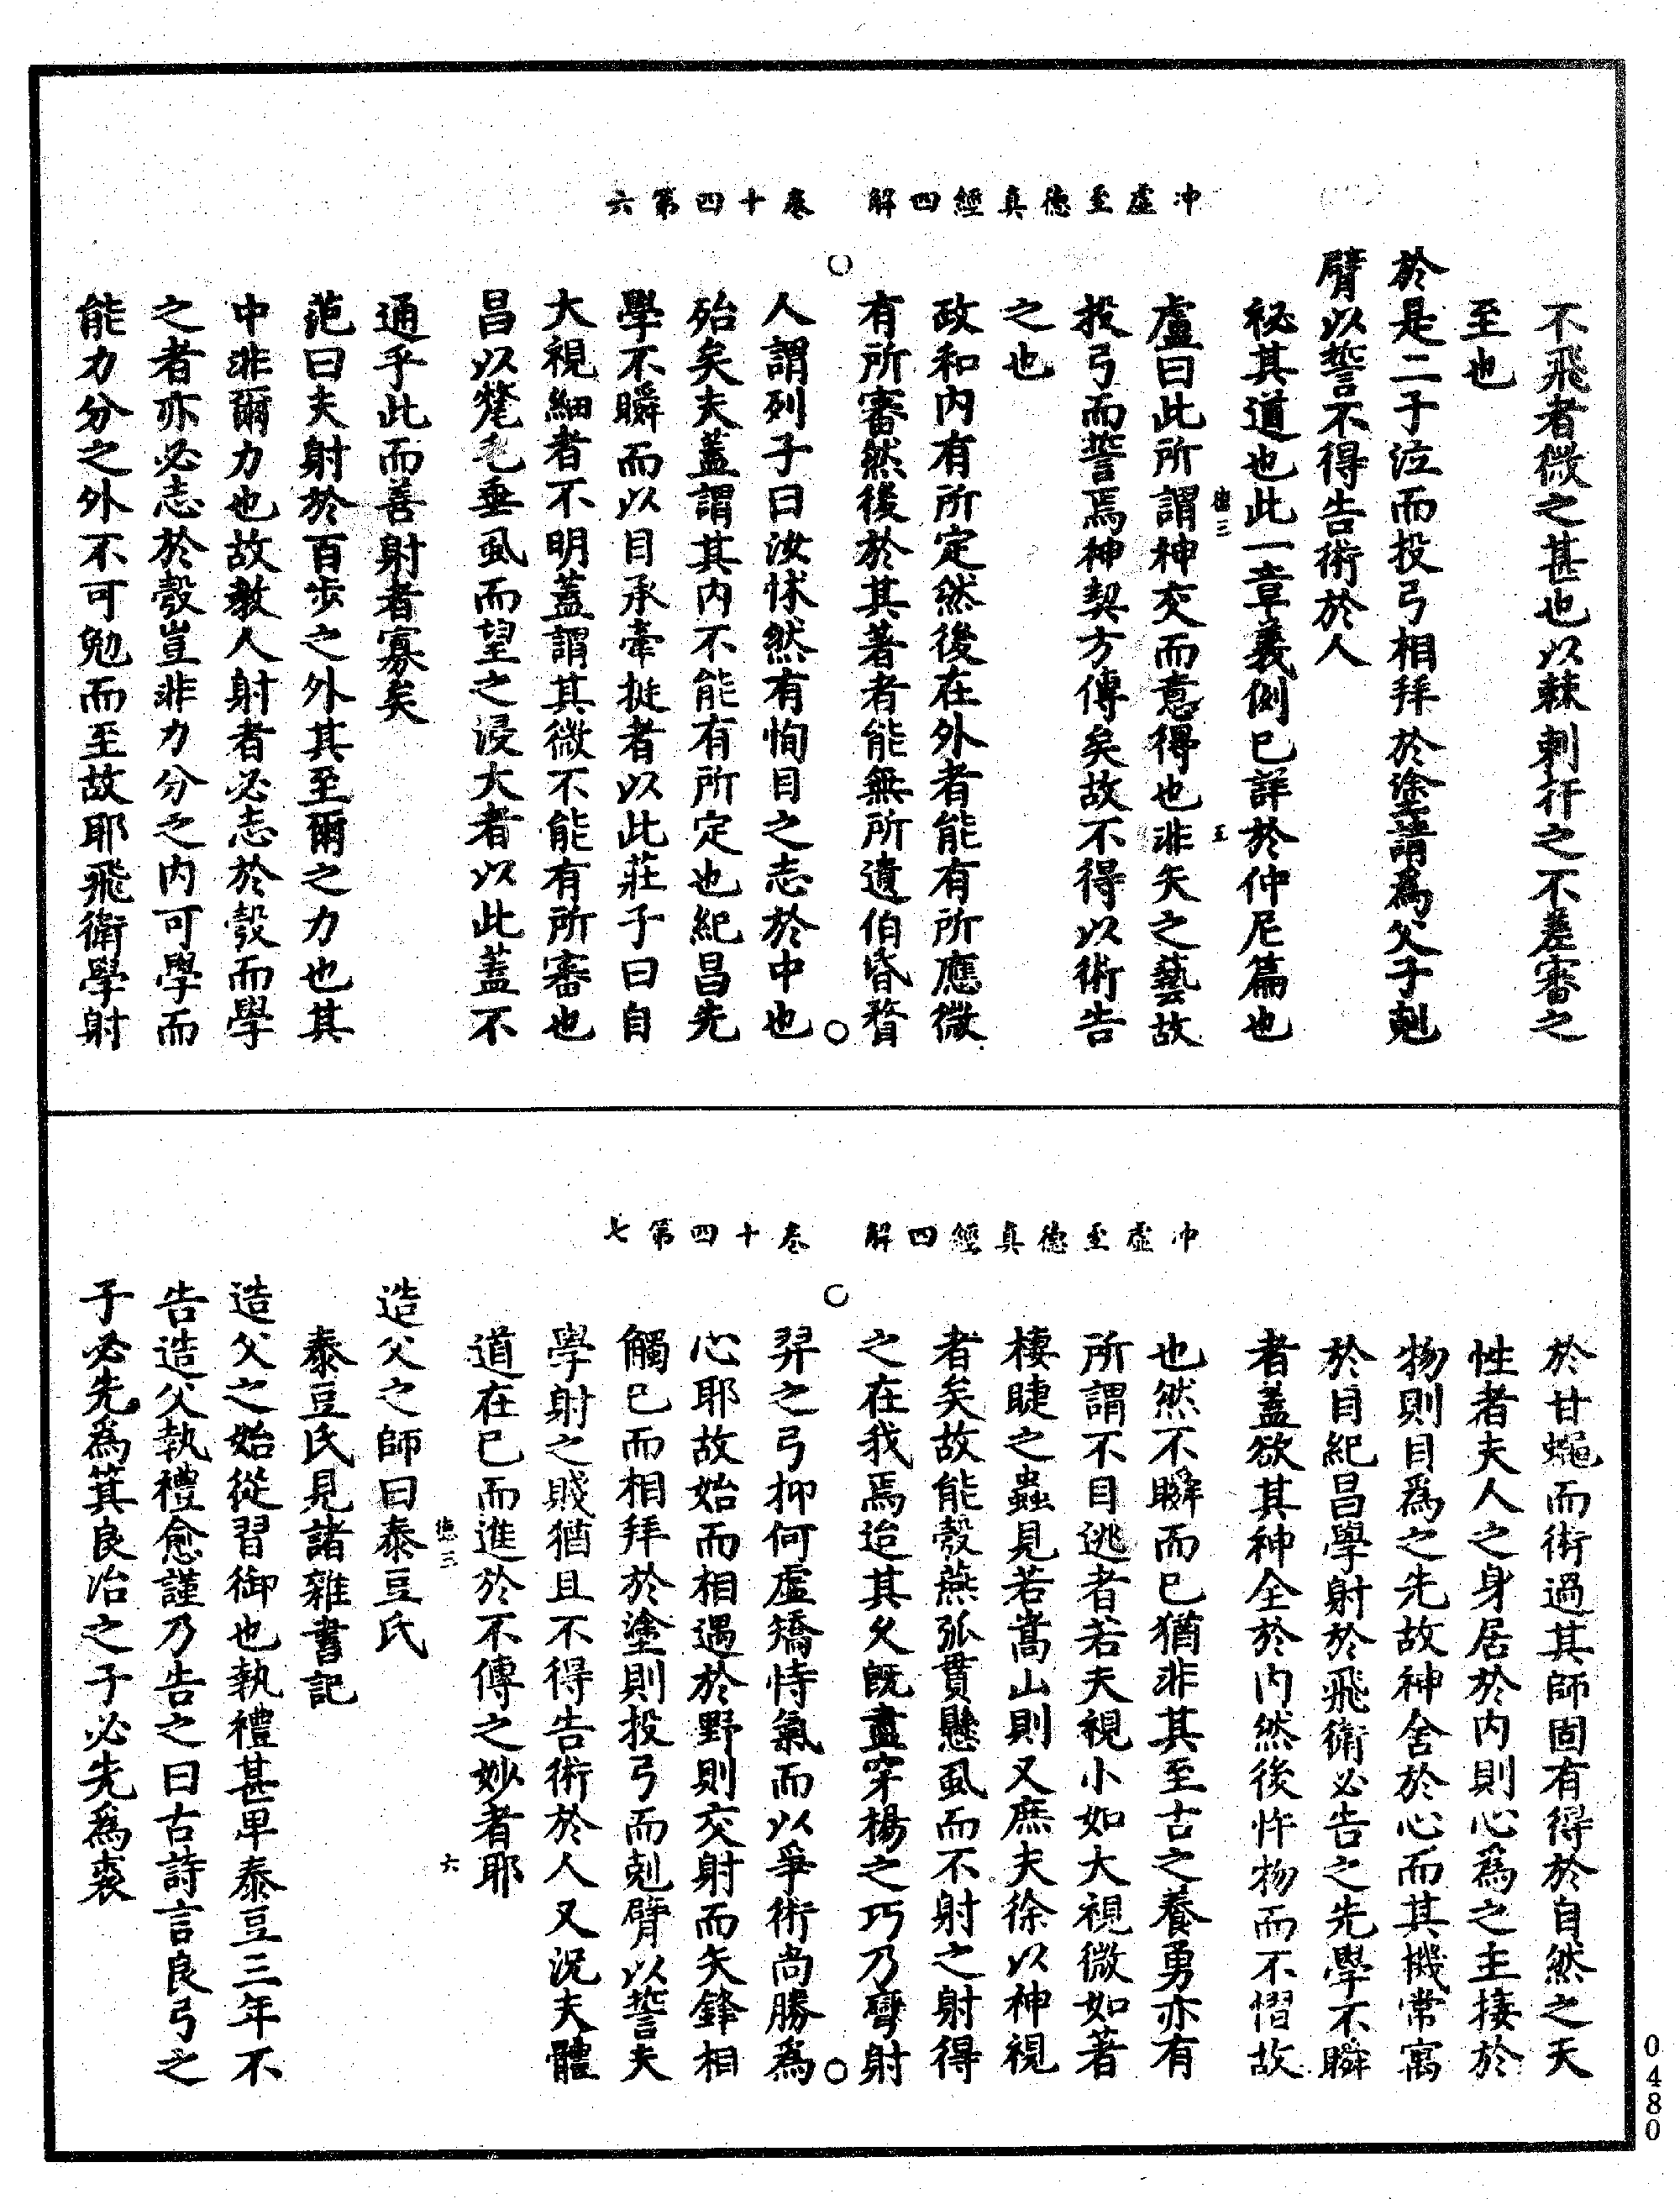 冲虛至德真經四解　卷十四第六
不飛者微之甚也以棘刺扞之不差審之
至也
於是二子泣而投弓相拜於塗請爲父子剋
臂以誓不得告術於人
祕其道也此一章義例已詳於仲尼篇也
德三
五
盧曰此所謂神交而意得也非矢之藝故
投弓而誓焉神契方傳矣故不得以術告
之也
政和内有所定然後在外者能有所應微
有所審然後於其著者能無所遺伯昏瞀
人謂列子曰汝怵然有恂目之志於中也
殆矣夫蓋謂其内不能有所定也紀昌先
學不瞬而以目承牽挺者以此莊子曰自
大視細者不明蓋謂其微不能有所審也
昌以氂毛垂虱而望之浸大者以此蓋不
通乎此而善射者寡矣
范曰夫射於百步之外其至爾之力也其
中非爾力也故教人射者必志於彀而學
之者亦必志於彀豈非力分之内可學而
能力分之外不可勉而至故耶飛衛學射
冲虛至德真經四解　卷十四第七
於甘蠅而術過其師固有得於自然之天
性者夫人之身居於内則心爲之主接於
物則目爲之先故神舍於心而其機常寓
於目紀昌學射於飛衛必告之先學不瞬
者蓋欲其神全於内然後忤物而不慴故
也然不瞬而已猶非其至古之養勇亦有
所謂不目逃者若夫視小如大視微如著
棲睫之蟲見若嵩山則又庶夫徐以神視
者矣故能彀燕弧貫懸虱而不射之射得
之在我焉迨其久既盡穿楊之巧乃彎射
羿之弓抑何虛矯恃氣而以爭術尚勝爲
心耶故始而相遇於野則交射而矢鋒相
觸已而相拜於塗則投弓而剋臂以誓夫
學射之賤猶且不得告術於人又況夫體
道在已而進於不傳之妙者耶
德三
六
造父之師曰泰豆氏
泰豆氏見諸雜書記
造父之始從習御也執禮甚卑泰豆三年不
告造父執禮愈謹乃告之曰古詩言良弓之
子必先爲箕良冶之子必先爲裘
0480